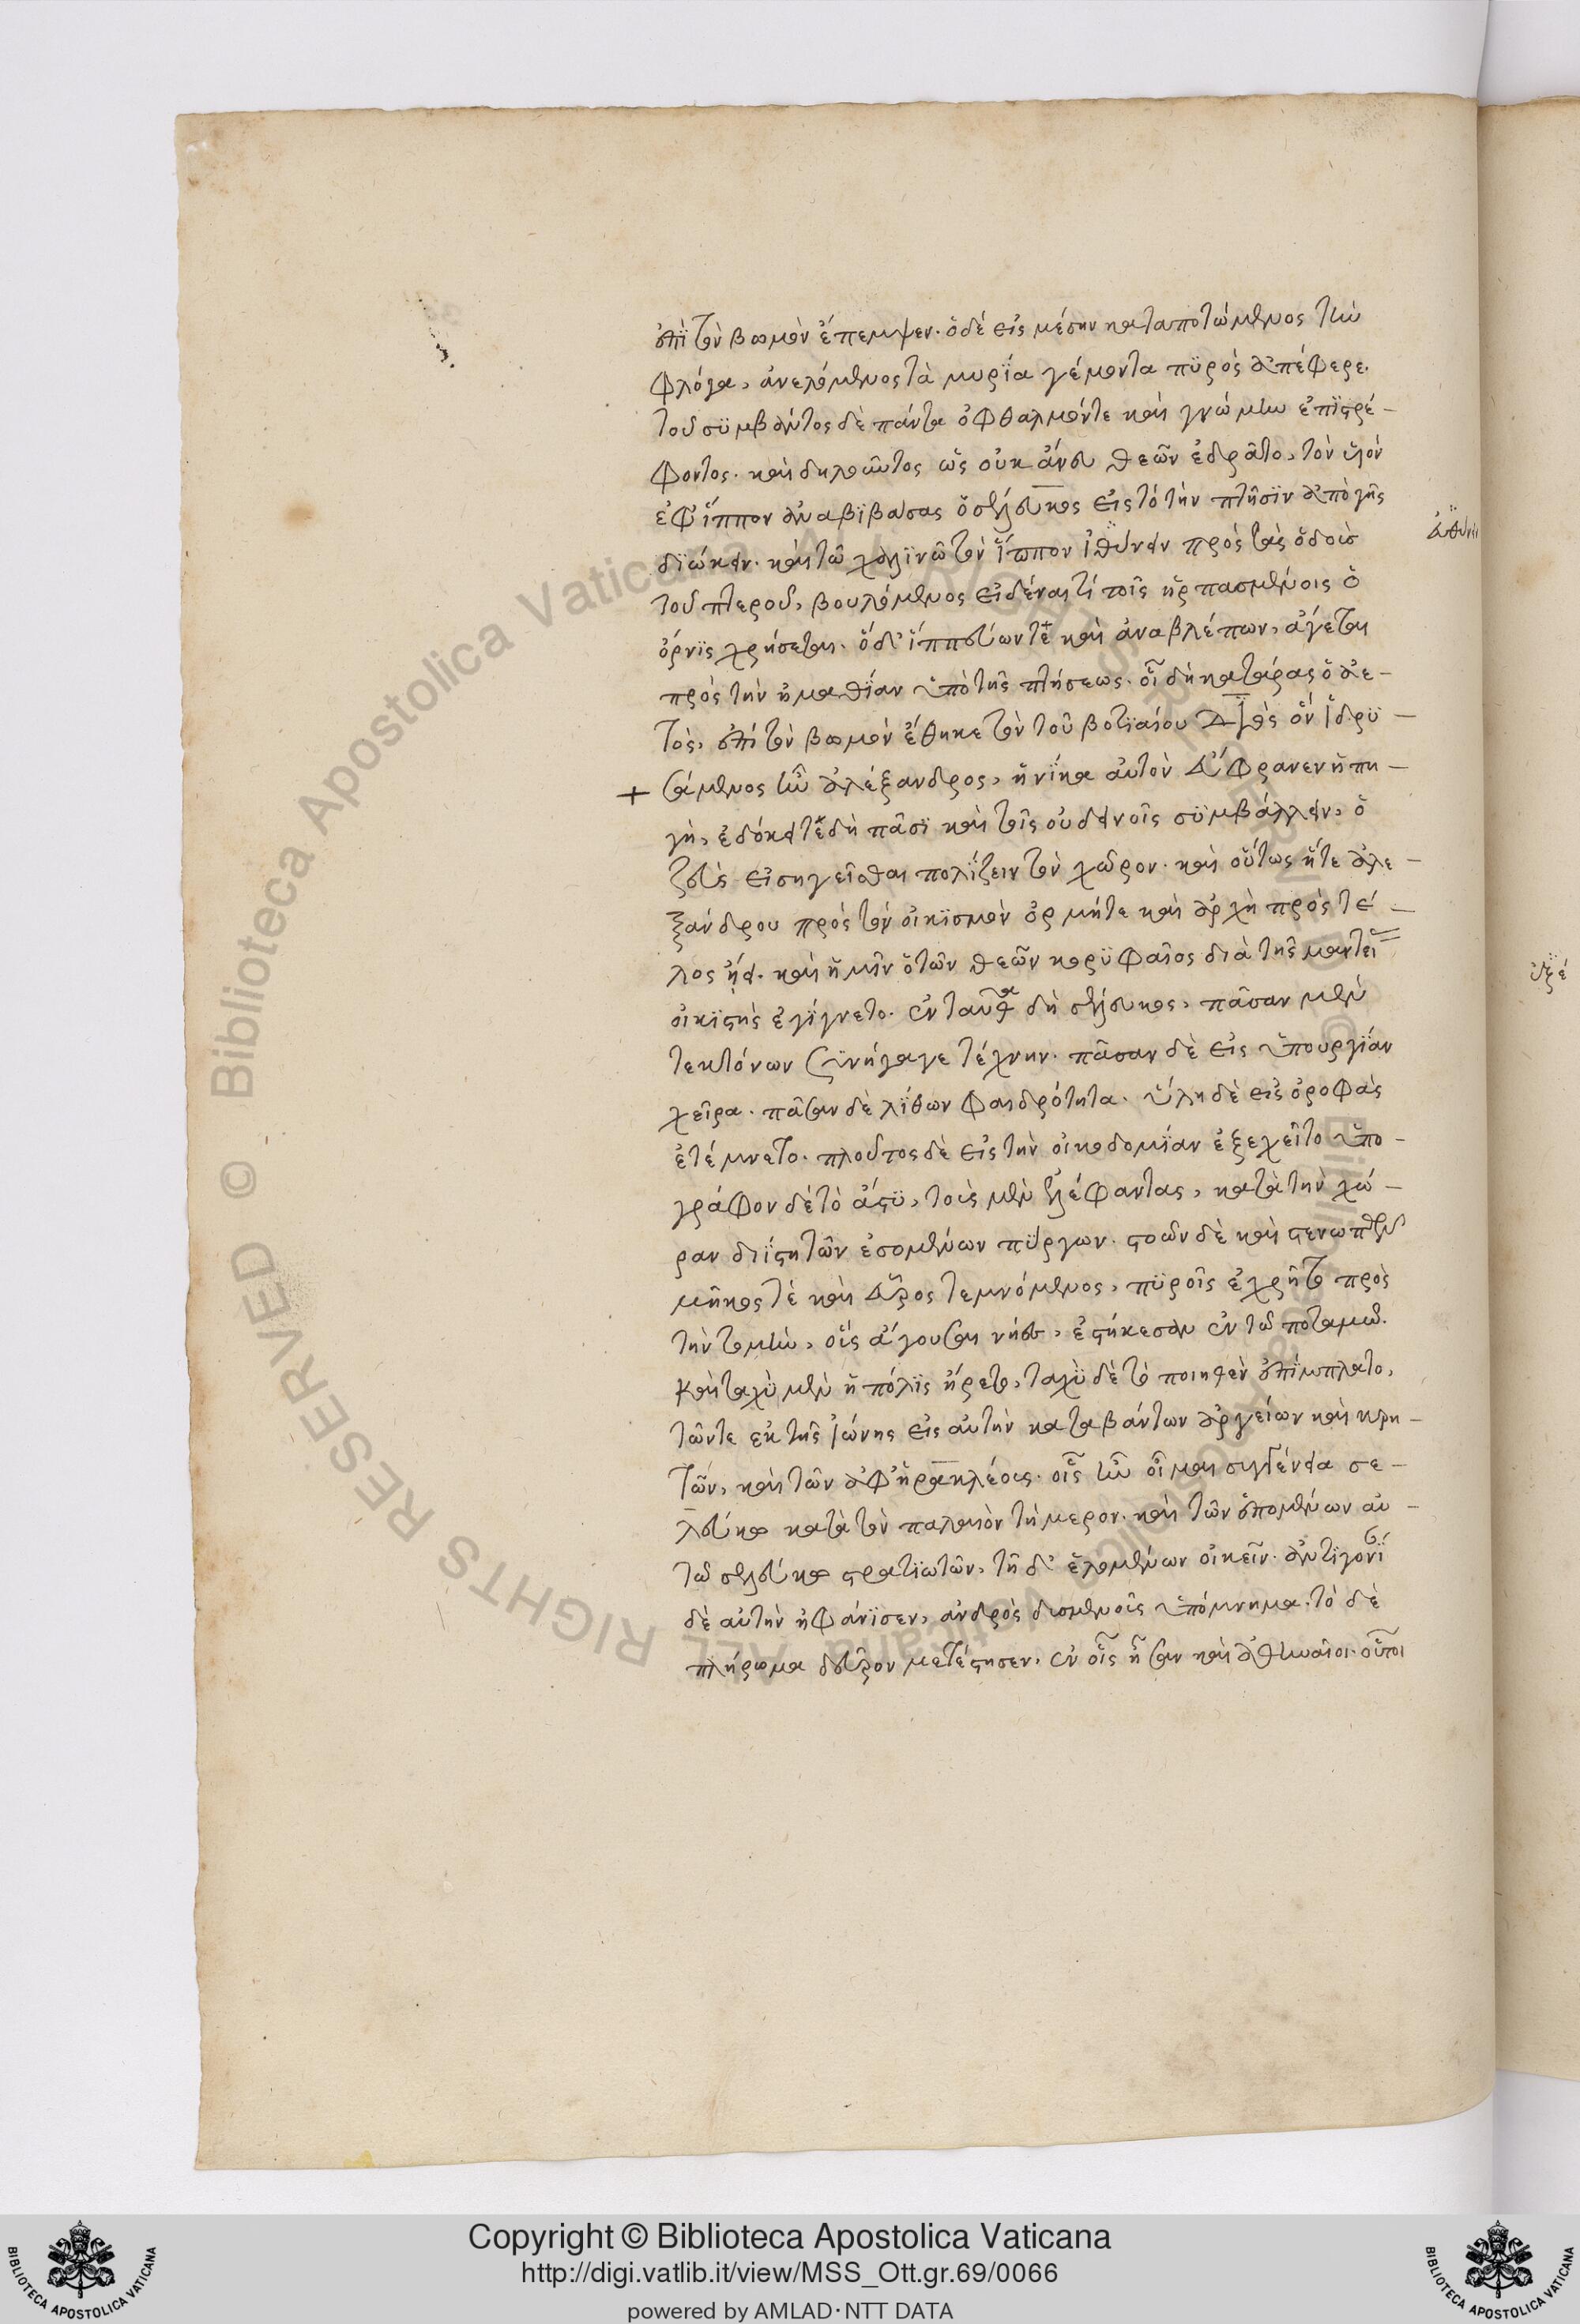 ἐπὶ τὸν βωμὸν ἔπεμψεν. ὁ δὲ εἰς μέσην καταπτώμενος τὴν
φλόγα, ἀνελόμενος τὰ μηρΐα γέμοντα πϋρὸς ἀπέφερε.
τοῦ σϋμβάντος δὲ πάντα ὀφθαλμόν τε καὶ γνώμην ἐπϊστρέ-
φοντος. καὶ δηλοῦντος ὡς οὐκ ἄνευ θεῶν ἐδρᾶτο, τὸν ϋἱὸν
ἐφ' ἵππον ἀναβϊβάσας ὁ σέλευκος εἰς τὸ τὴν πτῆσϊν ἀπὸ γῆς
διώκειν. καὶ τῶ χαλϊνῶ τὸν ἵππον ἰθύνειν πρὸς τὰς ὁδοὺσ
τοῦ πτεροῦ, βουλόμενος εἰδέναι τί τοῖς ἡρπασμένοις ὁ
ὄρνϊς χρήσεται. ὁ δ' ἱππεύων τὲ καὶ ἀναβλέπων, ἄγεται
πρὸς τὴν ἠμαθΐαν ὑπὸ τῆς πτήσεως. οἷ δὴ κατάρας ὁ ἀε-
τὸς, ἐπὶ τὸν βωμὸν ἔθηκε τὸν τοῦ βοτϊαίου Διὸς ὃν ἱδρϋ-
+ σάμενος ἦν ἀλέξανδρος, ἡνίκα αὐτὸν εὔφρανεν ἡ πη-
γὴ, ἐδόκει τὲ δὴ πᾶσϊ καὶ τοῖς οὐ δεινοῖς σϋμβάλλειν, ὁ
ζεὺς εἰσηγεῖσθαι πολΐζειν τὸν χῶρον. καὶ οὕτως ἥτε ἀλε-
ξάνδρου πρὸς τὸν οἰκϊσμὸν ὁρμή τε καὶ ἀρχὴ πρὸς τέ-
λος ἤει. καὶ ἡμῖν ὁ τῶν θεῶν κορϋφαῖος διὰ τῆς μαντεί
οἰκϊστὴς ἐγίγνετο. ἐνταῦθα δὴ σέλευκος, πᾶσαν μὲν
τεκτόνων σϋνήγαγε τέχνην. πᾶσαν δὲ εἰς ὑπουργΐαν
χεῖρα. πᾶσαν δὲ λΐθων φαιδρότητα. ὕλη δὲ εἰς ὀροφὰς
ἐτέμνετο. πλοῦτος δὲ εἰς τὴν οἰκοδομΐαν ἐξεχεῖτο ὑπο-
γράφων δὲ τὸ ἄστϋ, τοὺς μὲν ἐλέφαντας, κατὰ τὴν χώ-
ραν διΐστη τῶν ἐσομένων πϋργων. στοῶν δὲ καὶ στενωπῶν
μῆκος τὲ καὶ εὖρος τεμνόμενος, πϋροῖς ἐχρῆτο πρὸς
τὴν τομὴν, οὓς ἄγουσαι νῆες, ἑστήκεσαν ἐν τῶ ποταμῶ.
καὶ ταχὺ μὲν ἡ πόλϊς ἤρετο, ταχὺ δὲ τὸ ποιηθὲν ἐπΐμπλατο,
τῶν τε ἐκ τῆς ἰώνης εἰς αὐτὴν καταβάντων ἀργείων καὶ κρη-
τῶν, καὶ τῶν ἀφ' ἡρακλέους. οἷς ἦν οἶμαι συγγένεια σε-
λεύκω κατὰ τὸν παλαιὸν τήμερον. καὶ τῶν ἑπομένων αὐ-
τῶ σελεύκω στρατϊωτῶν, τῆ δ' ἑλομένων οἰκεῖν. ἀντιγονΐ
δὲ αὐτὴν ἠφάνϊσεν, ἀνδρὸς δυσμενοῦς ὑπόμνημα. τὸ δὲ
πλήρωμα δεῦρον μετέστησεν, ἐν οἷς ἦσαν καὶ ἀθηναῖοι. οὗτοι